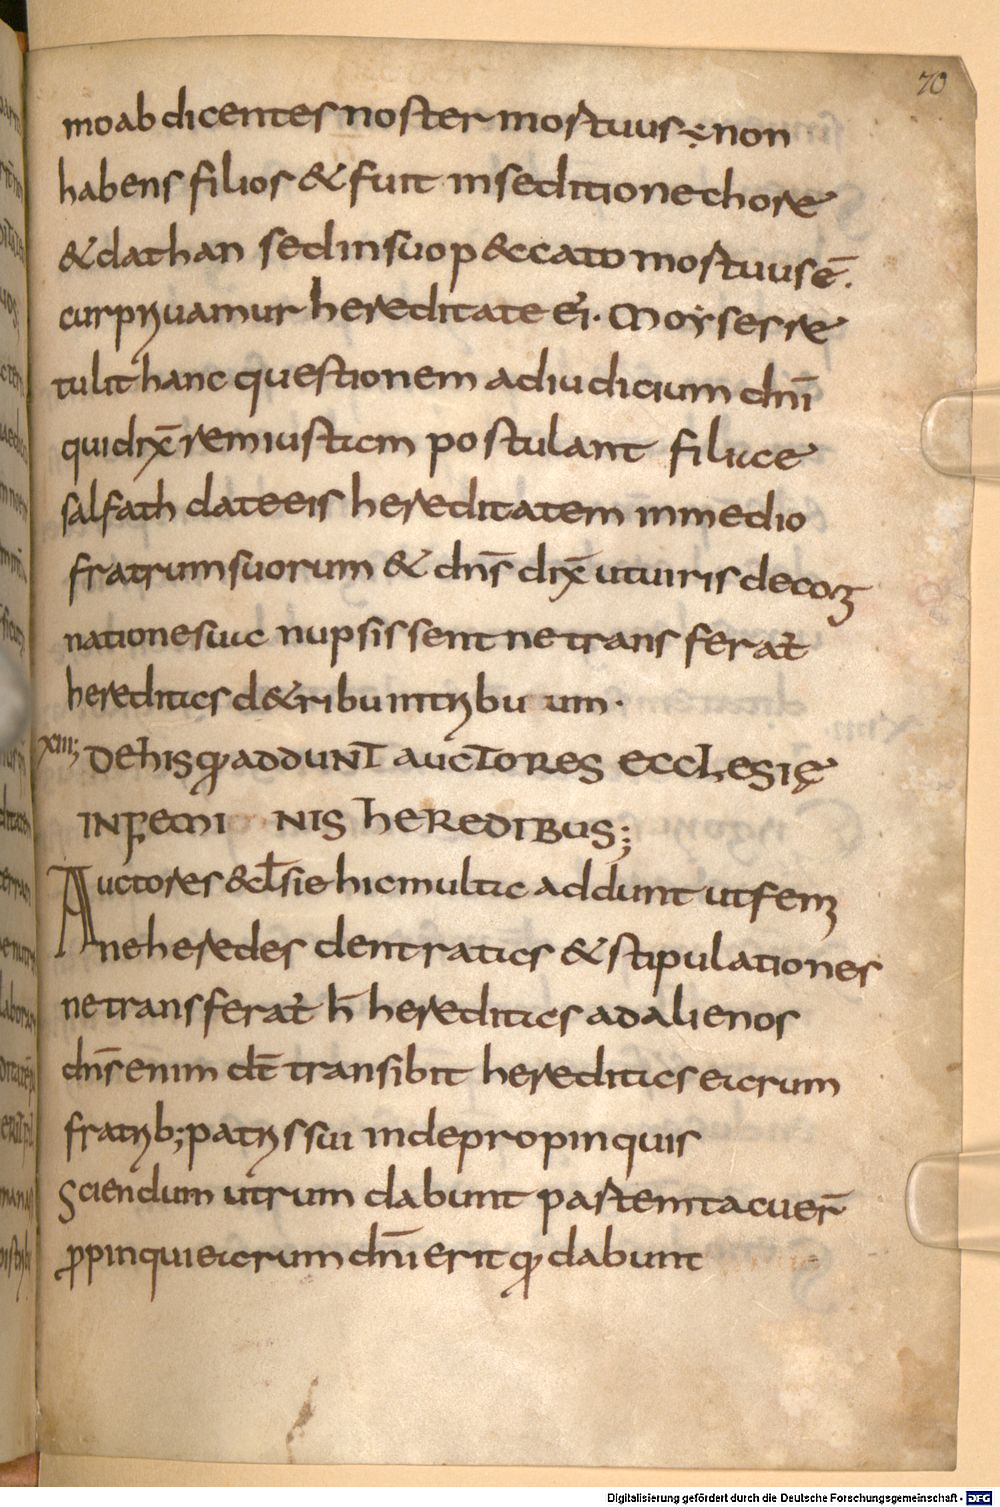 70
moab dicentes noster mortuus ÷ non
habens filios & fuit in seditione chore
& dathan sed in suo p&ccato mortuus ē.
cur priuamur hereditate ei. Moyses re
tulit hanc questionem ad iudicium dnī
qui dix̄ rem iustam postulant filiae
salfath date eis hereditatem in medio
fratrum suorum & dns̄ dix̄ ut uiris de cog
natione sua nupsissent ne transferat̄
hereditas de tribu in tribu um.
XIII; De his q̄ addunt auctores ecclesię
in femi nis heredibus;
Auctores &cl̄sie hic multa addunt ut fem
ine heredes dent ratas & stipulationes
ne transferat̄ h̄ hereditas ad alienos
dns̄ enim dt̄ transibit hereditas earum
fratrib; patris sui inde propinquis
Sciendum utrum dabunt pastem tacuer̄
ppinqui earum dnī erit q̄ dabunt
Digitalisierung gefördert durch die Deutsche Forschungsgemeinschaft - DFG